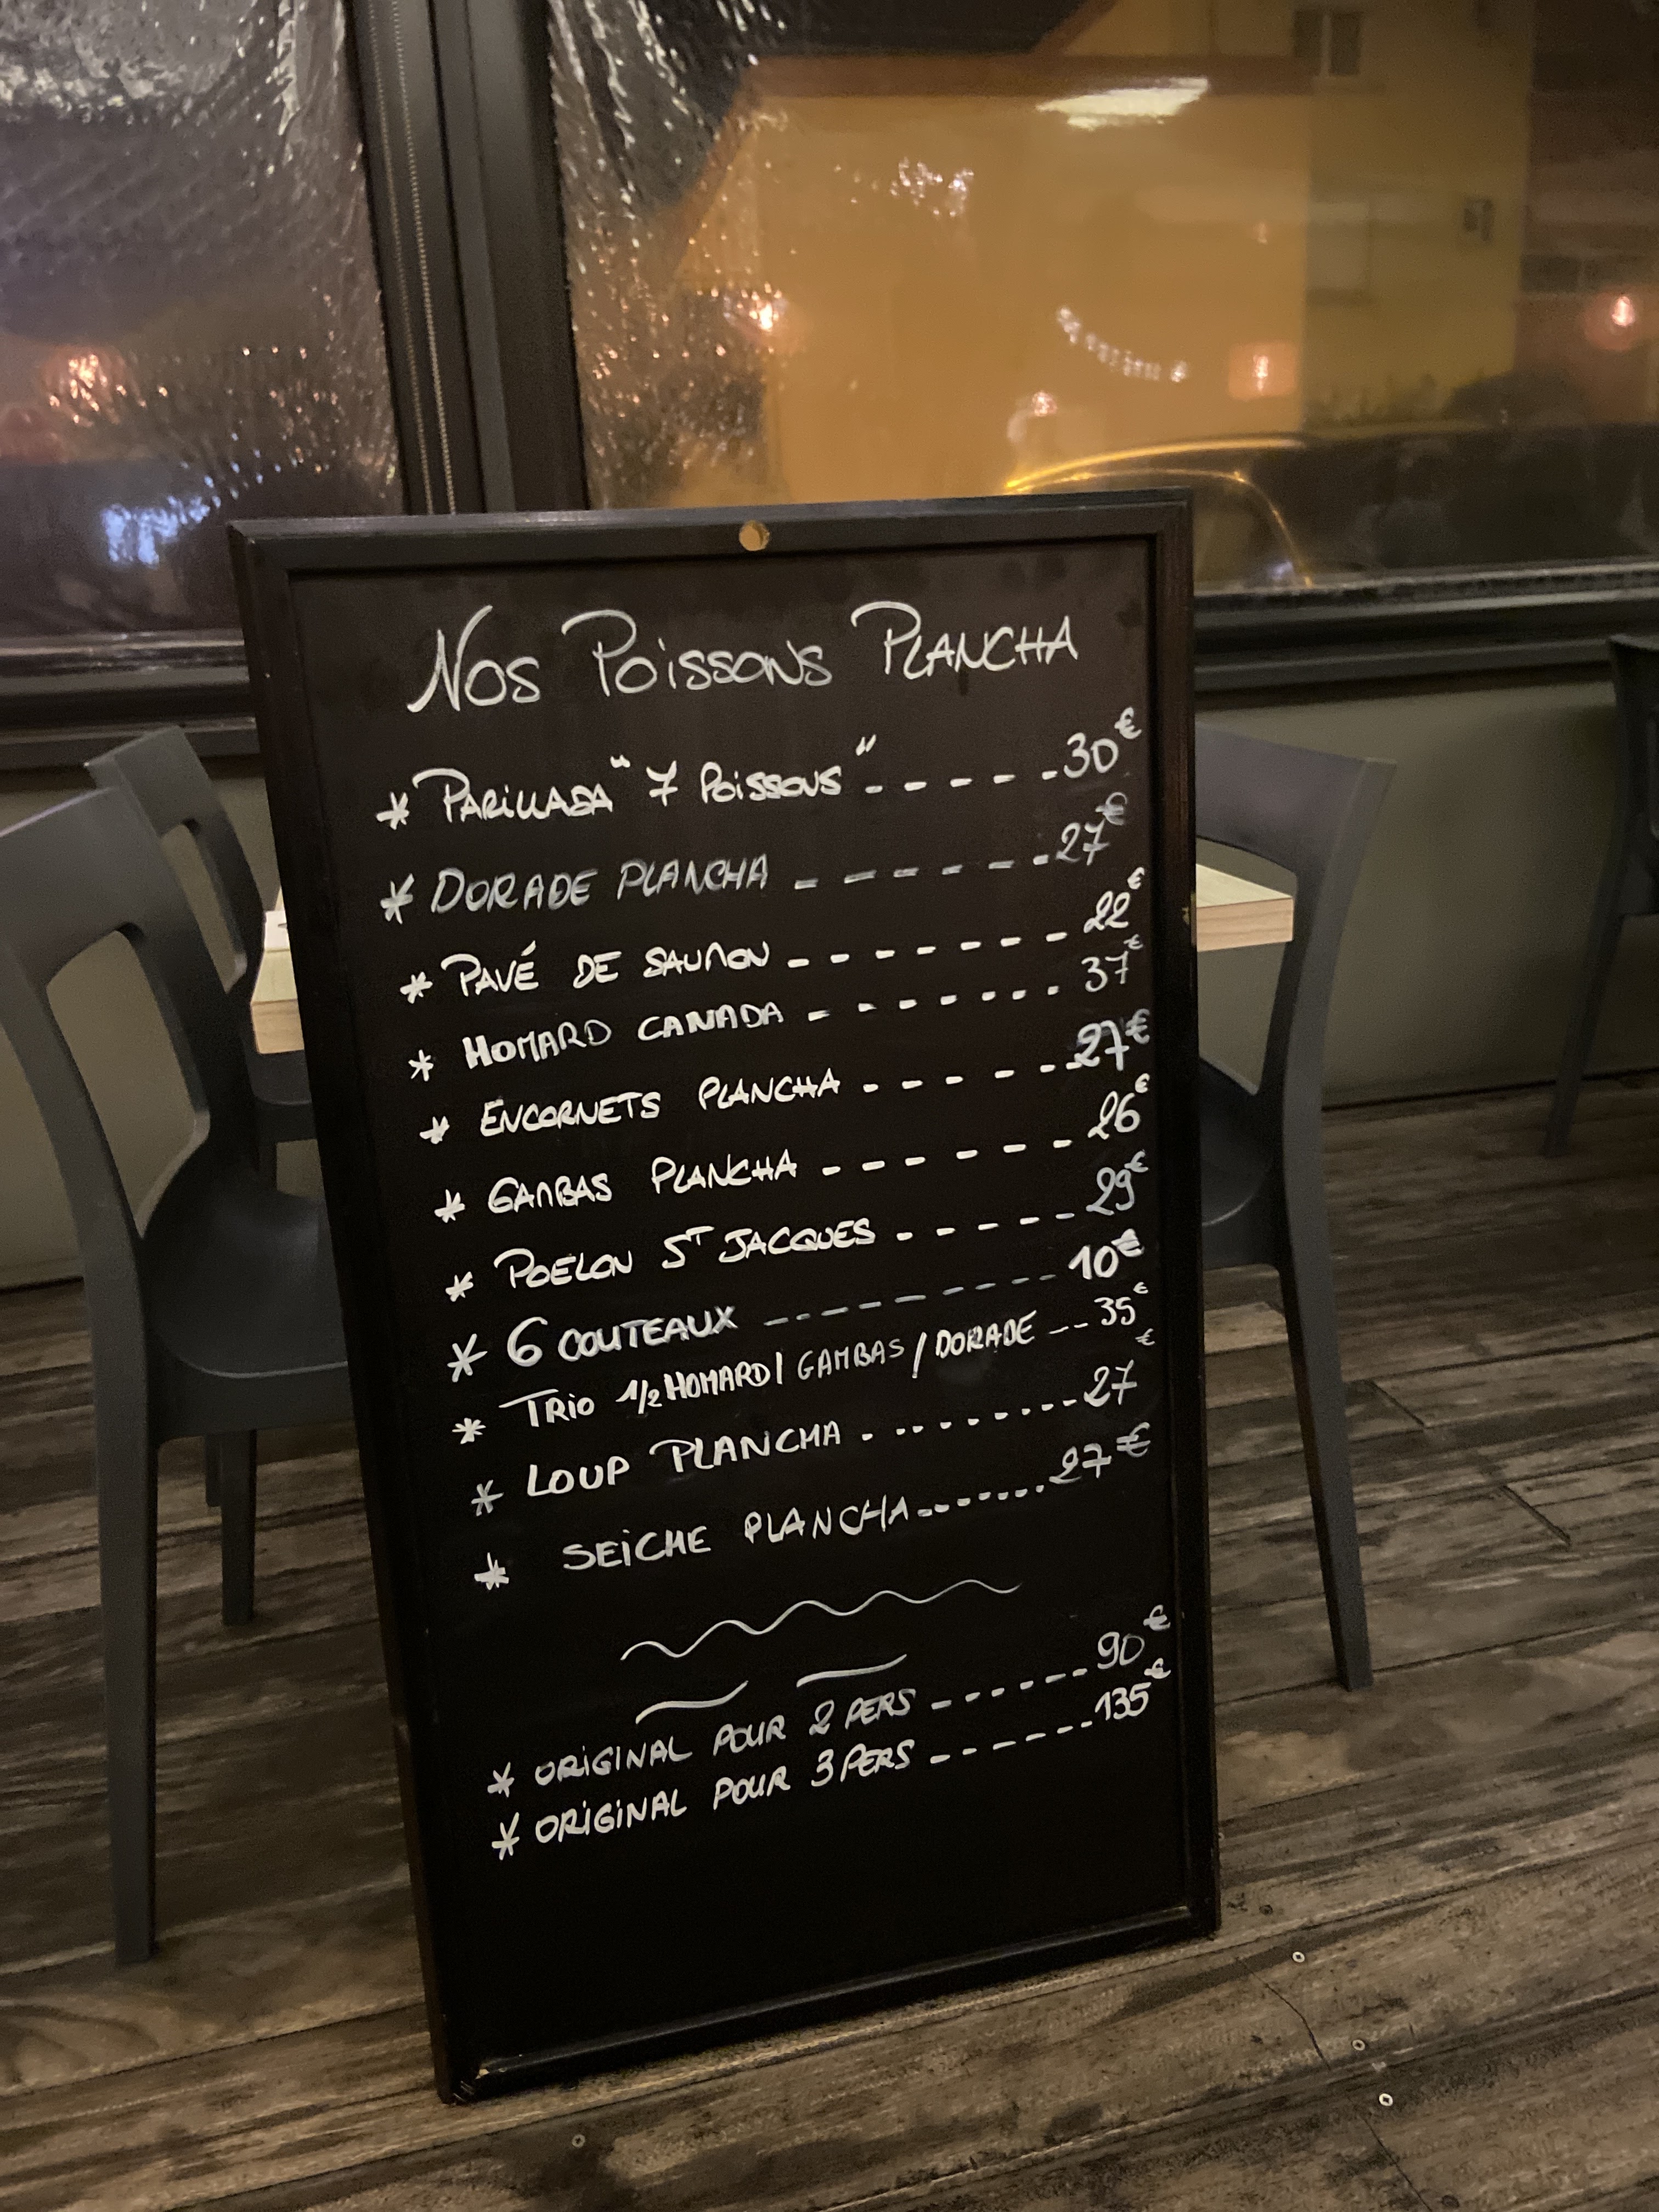 Nos Poissons Plancha
* Parillada "7 Poissons" - - - - - 30€
* DORADE PLANCHA - - - - - - 27€
* PAVÉ DE SAUMON - - - - - - - 22€
* HOMARD CANADA - - - - - - - 37€
* ENCORNETS PLANCHA - - - - - - 27€
* GAMBAS PLANCHA - - - - - - 26€
* POELON ST JACQUES - - - - - 29€
* 6 COUTEAUX - - - - - - - - 10€
* TRIO 1/2 HOMARD/ GAMBAS / DORADE - - - 35€
* LOUP PLANCHA - - - - - - - - 27€
* SEICHE PLANCHA - - - - - - - 27€
* ORIGINAL POUR 2 PERS - - - - - - 90€
* ORIGINAL POUR 3 PERS - - - - - - 135€